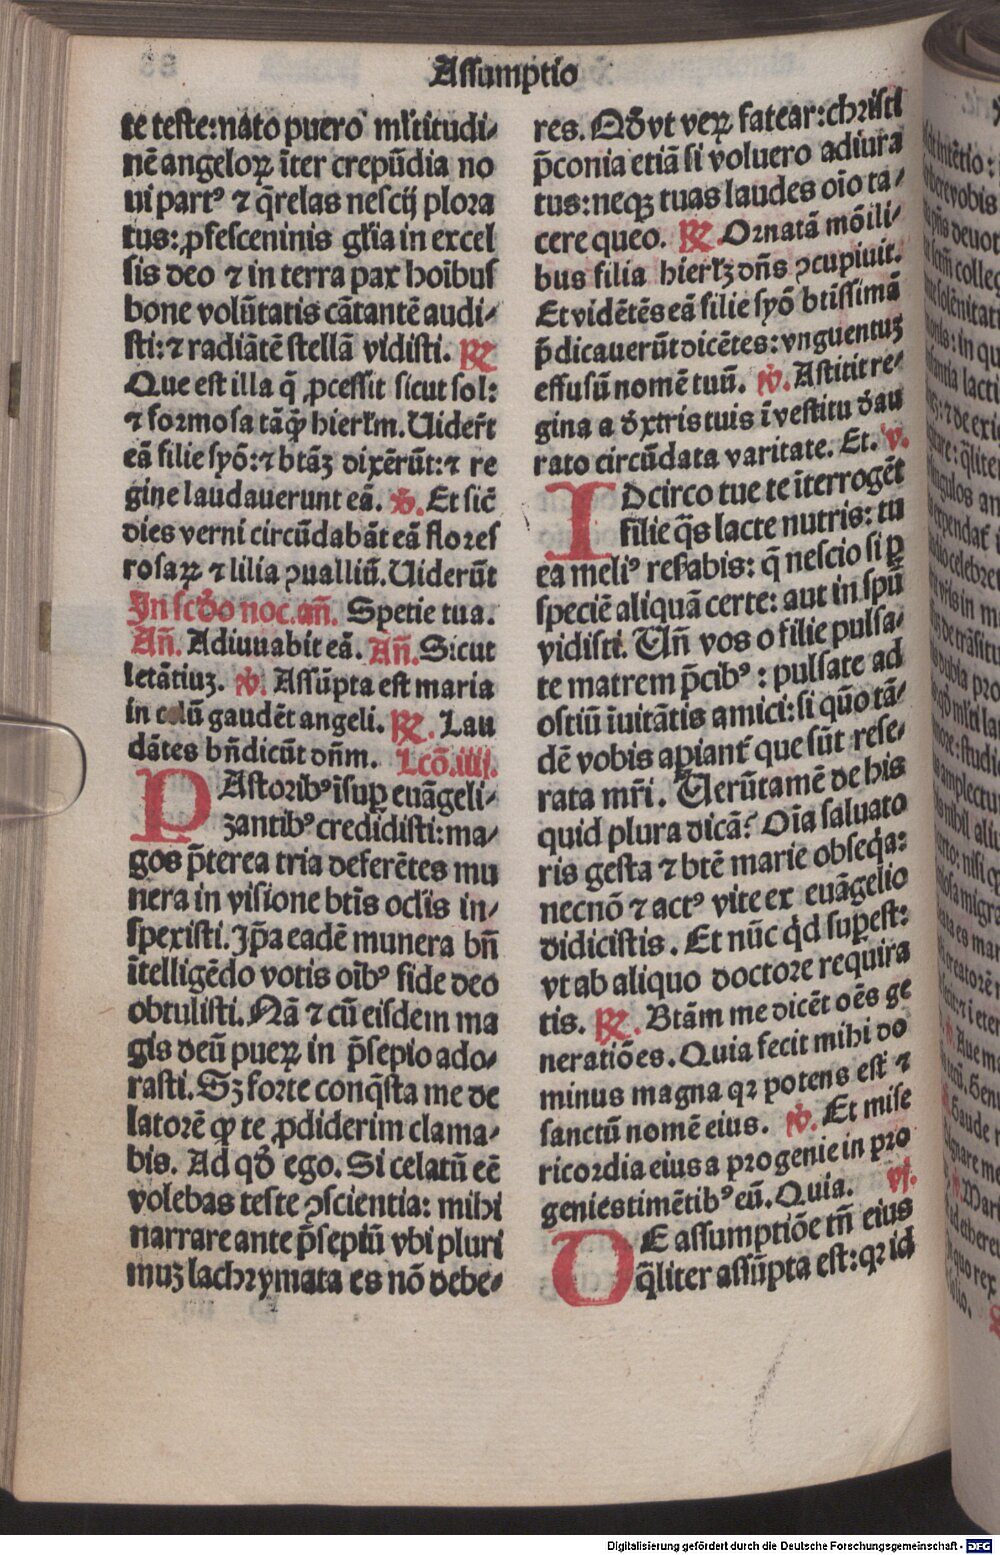 Assumptio
te teste: nato puero ml̃titudi⸗
nē angeloꝝ ĩter crepũdia no
ui partꝰ ⁊ q̃relas nescij plora
tus: ꝓ fesceninis gl̃ia in excel
sis deo ⁊ in terra pax hoĩbus
bone volũtatis cãtantẽ audi⸗
sti: ⁊ radiãtẽ stellã vidisti. ℟
Que est illa q̃ ꝓcessit sicut sol:
⁊ formosa tãꝙ̃ hierl̃m. Uider̃t
eã filie syõ: ⁊ btãꝫ dixẽrũt: ⁊ re
gine laudauerunt eã. ℣. Et sic̃
dies verni circũdabãt eã flores
rosaꝝ ⁊ lilia ꝯualliũ. Uiderũt
In sc̃do noc. añ. Spetie tua.
Añ. Adiuuabit eã. Añ. Sicut
letãtiuꝫ. ℣. Assũpta est maria
in celũ gaudẽt angeli. ℟. Lau
dãtes bñdicũt dñm. Lcõ. iiij.
PAstoribꝰ ĩsuꝑ euãgeli⸗
zantibꝰ credidisti: ma⸗
gos p̃terea tria deferẽtes mu
nera in visione btĩs ocl̃is in⸗
spexisti. Ip̃a eadẽ munera bñ
ĩtelligẽdo votis oĩbꝰ fide deo
obtulisti. Nã ⁊ cũ eisdem ma
gis deũ pueꝝ in p̃sepio ado⸗
rasti. Sꝫ forte conq̃sta me de
latorẽ ꝙ te ꝓdiderim clama⸗
bis. Ad qd̃ ego. Si celatũ eẽ
volebas teste ꝯscientia: mihi
narrare ante p̃sepiũ vbi pluri
muꝫ lachrymata es nõ debe⸗
res. Qd̃ vt veꝝ fatear: christi
p̃conia etiã si voluero adiura
tus: neqꝫ tuas laudes oĩo ta⸗
cere queo. ℟. Ornatã mõili⸗
bus filia hierl̃ꝫ dñs ꝯcupiuit.
Et vidẽtẽs eã filie syõ btĩssimã
p̃dicauerũt dicẽtes: vnguentuꝫ
effusũ nomẽ tuũ. ℣. Astitit re⸗
gina a d̃xtris tuis ĩ vestitu d̃au
rato circũdata varitate. Et. v.
IDcirco tue te ĩterrogẽt
filie q̃s lacte nutris: tu
ea meliꝰ resꝑabis: q̃ nescio si ꝑ
speciẽ aliquã certe: aut in spũ
vidisti. Uñ vos o filie pulsa⸗
te matrem p̃cibꝰ: pulsate ad
ostiũ ĩuitãtis amici: si quõ tã⸗
dẽ vobis apiant̃ que sũt rese⸗
rata mr̃i. Uerũtamẽ de his
quid plura dicã: Oĩa saluato
ris gesta ⁊ btẽ marie obseq̃a:
necnõ ⁊ actꝰ vite ex euãgelio
didicistis. Et nũc qd̃ supest:
vt ab aliquo doctore requira
tis. ℟. Btãm me dicẽt oẽs ge
neratiões. Quia fecit mihi do
minus magna qꝛ potens est ⁊
sanctũ nomẽ eius. ℣. Et mise
ricordia eius a progenie in pro
genies timẽtibꝰ eũ. Quia. vj.
DE assumptiõe tñ eius
q̃liter assũpta est: qꝛ id
Digitalisierung gefördert durch die Deutsche Forschungsgemeinschaft - DFG